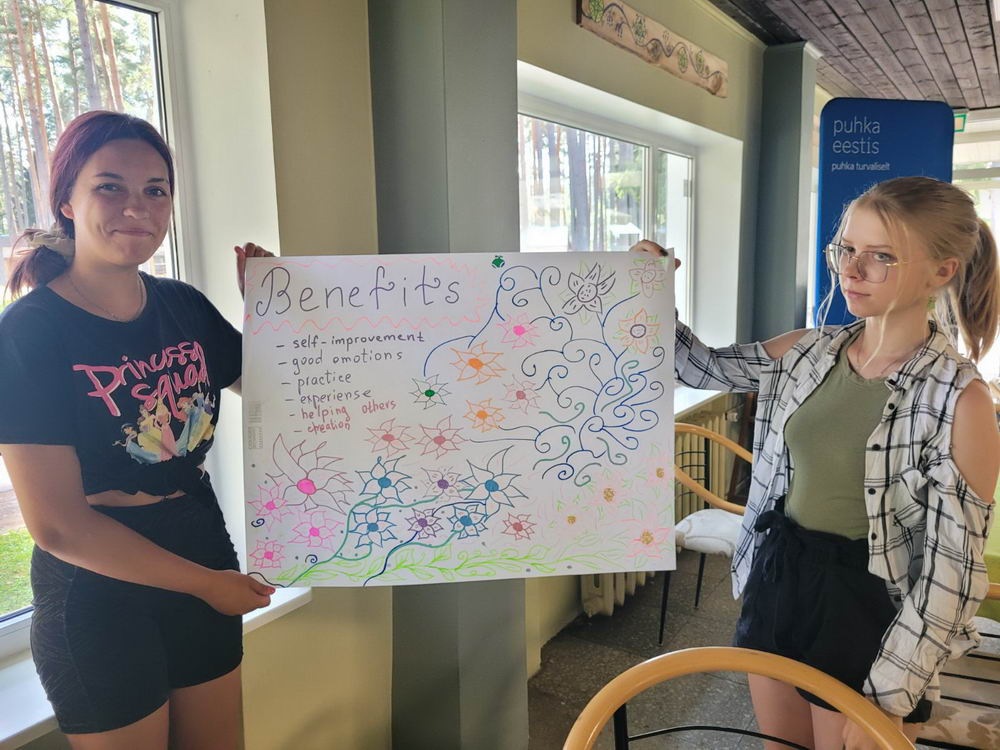 Benefits
- self-improvement
- good emotions
- practice
- experiense
- helping others
- creation
Princess
squad
puhka
eestis
puhka turvaliselt